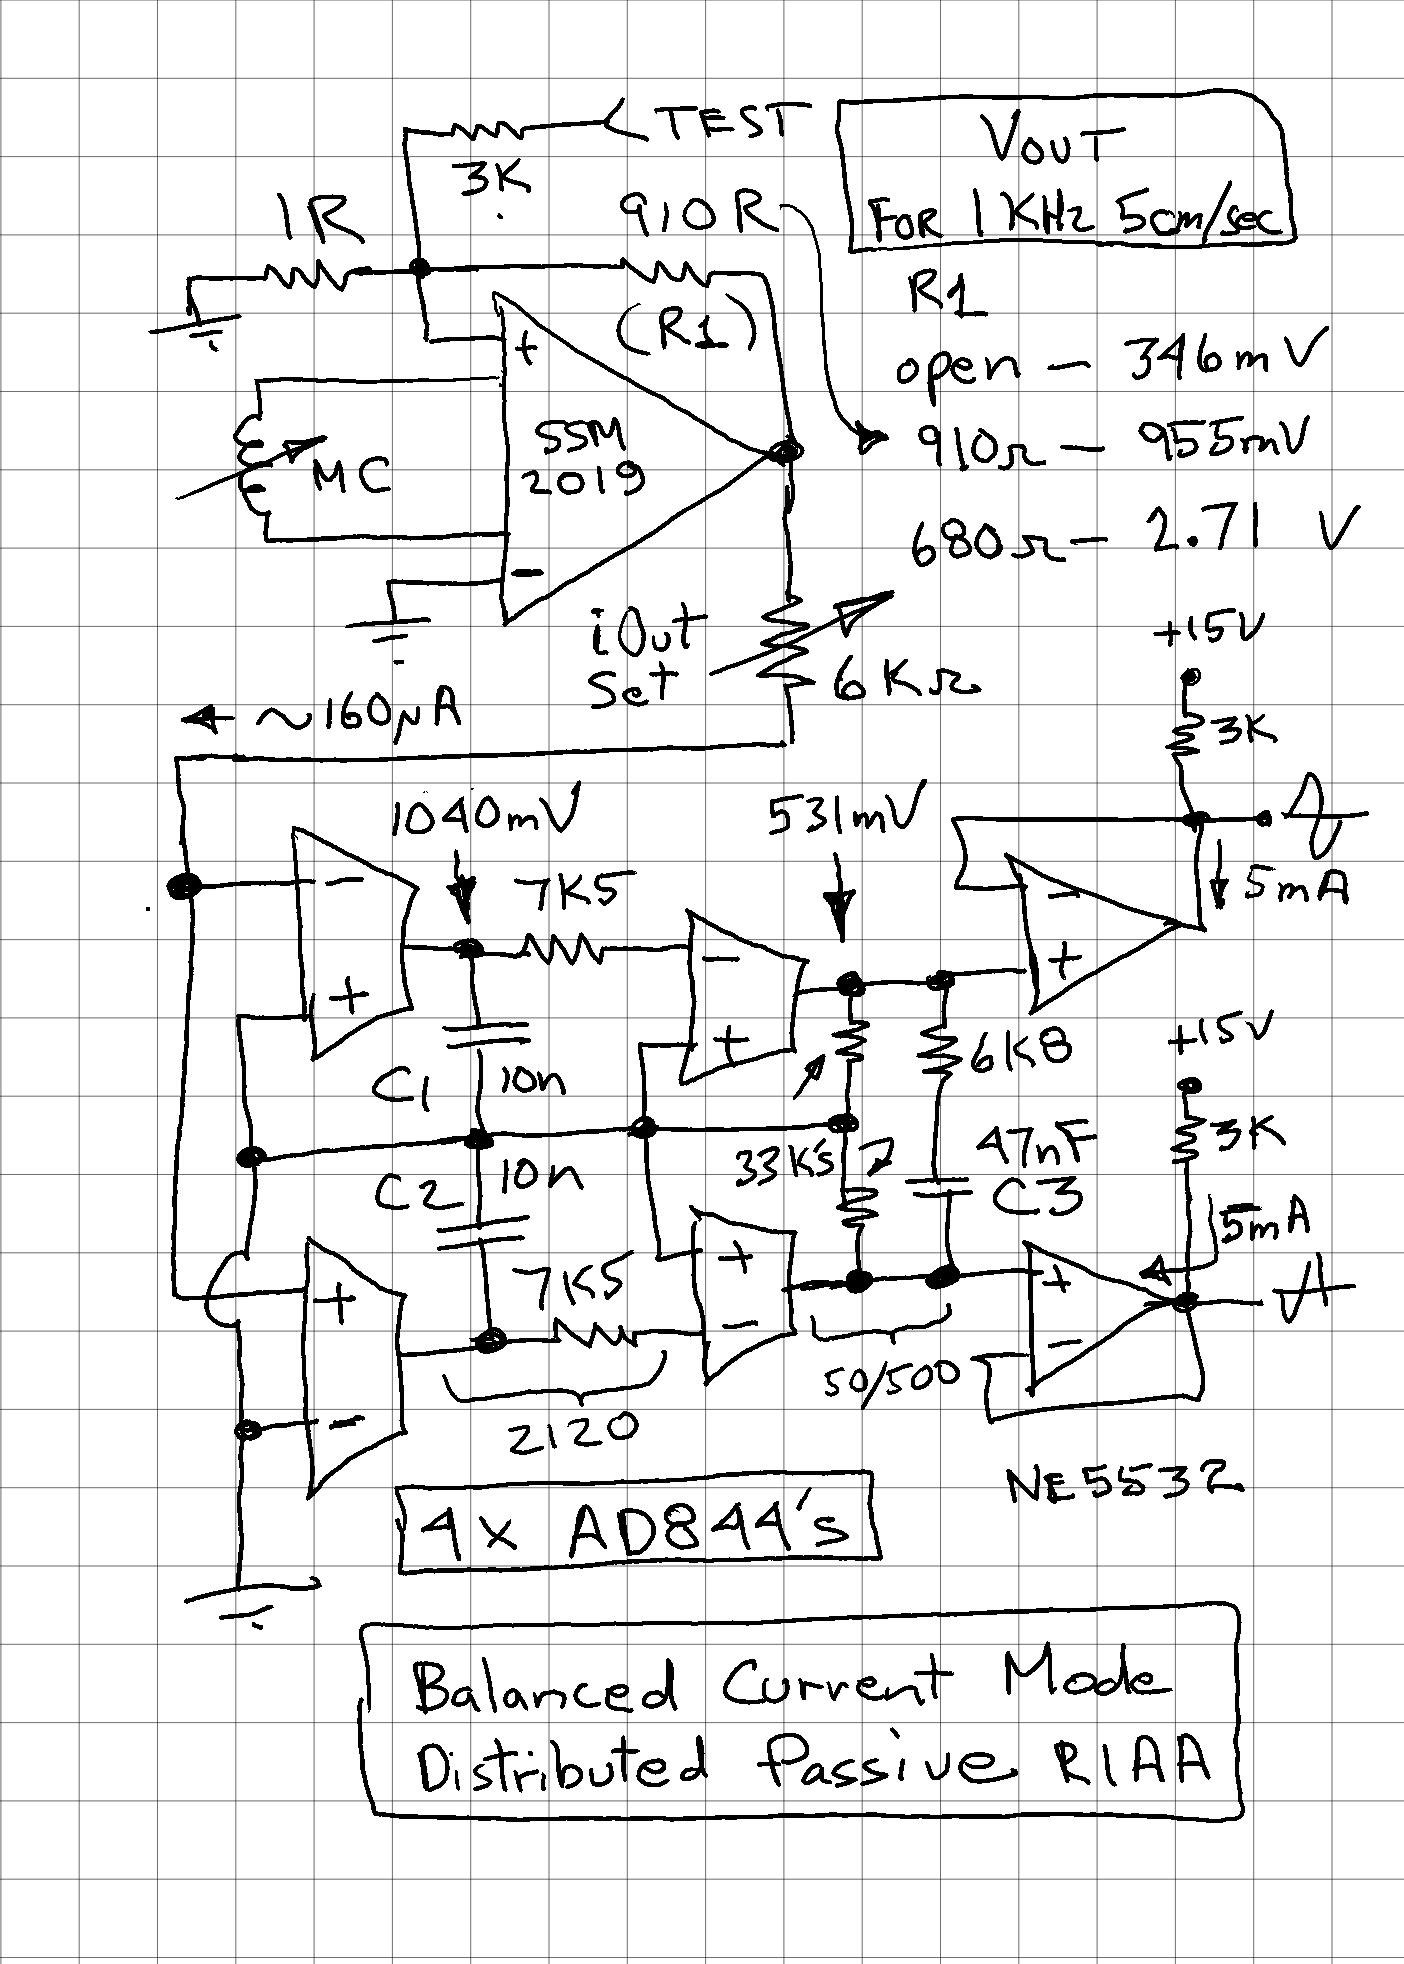 TEST
3K
1R
910R
(R1)
VOUT
FOR 1KHz 5cm/sec
R1
open — 346mV
910Ω — 955mV
680Ω — 2.71 V
+
SSM
2019
MC
−
iOut
Set
6KΩ
~160µA
+15V
3K
1040mV
531mV
7K5
5mA
−
+
−
+
−
+
C1
10n
6K8
+15V
3K
C2
10n
33K's
47nF
C3
5mA
7K5
+
−
+
−
+
−
50/500
2120
NE5532
4x AD844's
Balanced Current Mode
Distributed Passive RIAA